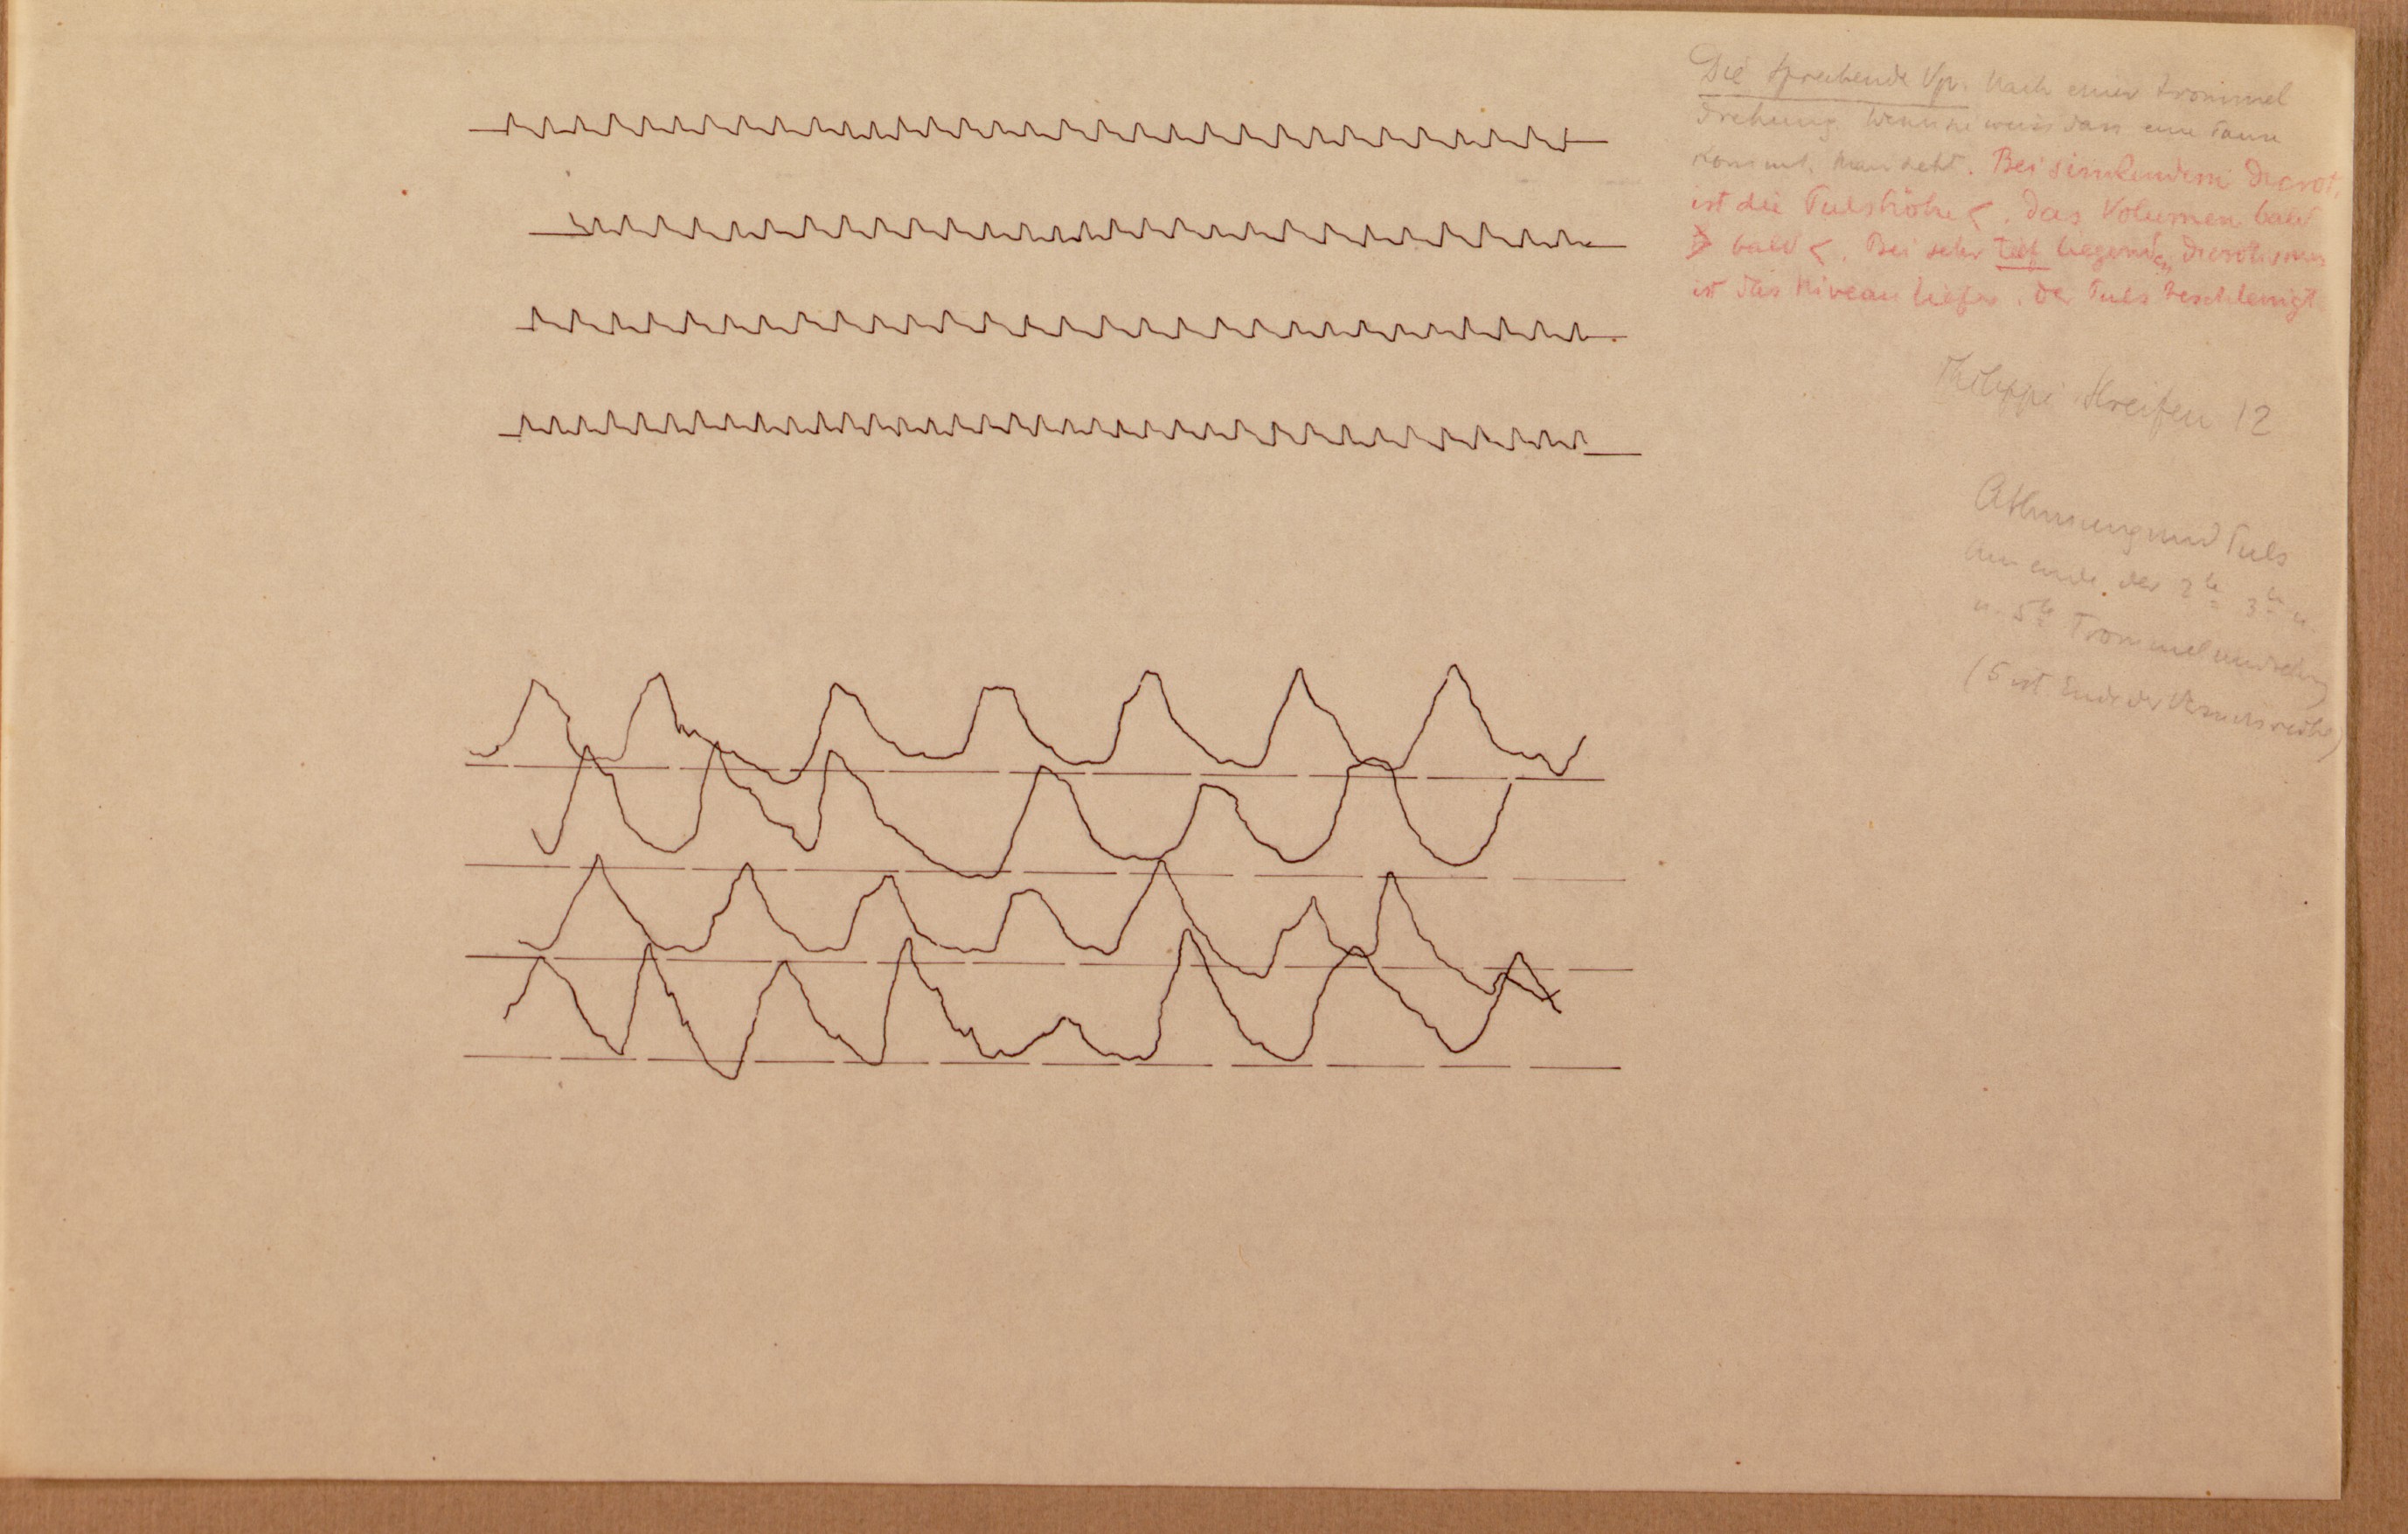 Die sprechende Vp. Nach einer Trommel
drehung wenn sie weiss dass eine Taune
kommt. Man sieht. Bei sinkendem Dicrot.
ist die Pulshöhe <. Das Volumen bald
> bald <. Bei sehr tief liegendem Dicrotismus
ist das Niveau tiefer. Der Puls beschleunigt
Philippi Streifen 12
Athmung und Puls
Am ende der 2te 3te u.
u. 5te Trommelumdrehung
(5 ist Ende der Versuchsreihe)